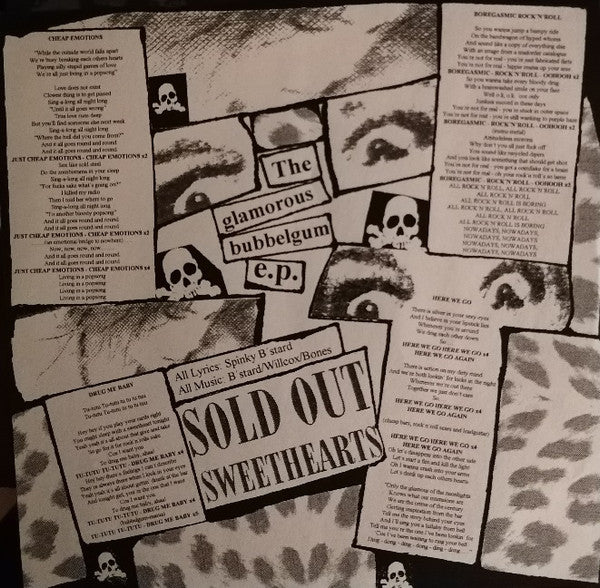 CHEAP EMOTIONS
"While the outside world falls apart
We're busy breaking each others hearts
Playing silly stupid games of love
We're all just living in a popsong"
Love does not exist
Closest thing is to get pissed
Sing-a-long all night long
"Until it all goes wrong"
True love runs deep
But you'll find someone else next week
Sing-a-long all night long
"Where the hell did you come from?"
And it all goes round and round
And it all goes round and round
JUST CHEAP EMOTIONS - CHEAP EMOTIONS x2
Sex like cold steel
Do the zombmenis in your sleep
Sing-a-long all night long
"For fucks sake what's going on?"
I killed my radio
Then I told her where to go
Sing-a-long all night long
"To another bloody popsong"
And it all goes round and round
And it all goes round and round
JUST CHEAP EMOTIONS - CHEAP EMOTIONS x2
(an emotional bridge to nowhere)
Now, now, now, now
And it all goes round and round
And it all goes round and round
JUST CHEAP EMOTIONS - CHEAP EMOTIONS x4
Living in a popsong
Living in a popsong
Living in a popsong
Living in a popsong
BOREGASMIC ROCK'N'ROLL
So you wanna jump a bumpy ride
On the bandwagon of hyped whores
And sound like a copy of everything else
With an image from a mailorder catalogue
You're not for real - you're just fabricated diets
You're not for real - hippie mama up your arse
BOREGASMIC - ROCK'N'ROLL - OOHOOH x2
So you wanna take every bloody drug
With a brainwashed smile on your face
Well o.k, o.k. you only
Junkies succeed in these days
You're not for real - you're stuck in outer space
You're not for real - you're still wanking to purple haze
BOREGASMIC - ROCK'N'ROLL - OOHOOH x2
Attitudeless morons
Why don't you all just fuck off
You sound like recycled diapers
And you look like something that should get shot
You're not for real - you got a comfiture for a brain
You're not for real - oh your rock'n'roll's so lame
BOREGASMIC - ROCK'N'ROLL - OOHOOH x2
ALL ROCK'N'ROLL, ALL ROCK'N'ROLL
ALL ROCK'N'ROLL IS BORING
ALL ROCK'N'ROLL, ALL ROCK'N'ROLL
ALL ROCK'N'ROLL
ALL ROCK'N'ROLL IS BORING
NOWADAYS, NOWADAYS,
NOWADAYS, NOWADAYS
NOWADAYS, NOWADAYS,
NOWADAYS, NOWADAYS
The
glamorous
bubbelgum
e.p.
HERE WE GO
There is silver in your sexy eyes
And I believe in your lipstick lies
Whenever you're around
We drag each other down
So...
HERE WE GO HERE WE GO x4
HERE WE GO AGAIN
There is action on my dirty mind
And we're both lookin' for kicks in the night
Whenever we're out there
Together we just don't care
So...
HERE WE GO HERE WE GO x4
HERE WE GO AGAIN
(cheap bars, rock'n'roll scars and leadguitar)
HERE WE GO HERE WE GO x4
HERE WE GO AGAIN
Oh let's disappear into the other side
Let's start a fire and kill the light
Oh I wanna crash into your arms
Let's drink up each others hearts
"Only the glamour of the moonlights
Knows what our romances are
We are the center of the century
Getting inspiration from the bar
Tell me the story behind your eyes
And I'll sing you a lullaby from hell
Tell me you're the one I've been lookin' for
Cos I've been waiting to ring your bell
Ding - dong - ding - dong - ding - dong
All Lyrics: Spinky B'stard
All Music: B'stard/Willcox/Bones
SOLD OUT
SWEETHEARTS
DRUG ME BABY
Tu-tutu Tu-tutu tu tu tutu
Tu-tutu Tu-tutu tu tu tutu
Hey hey if you play your cards right
You might sleep with a sweetheart tonight
Yeah yeah it's all about that give and take
So go for it for rock'n'rolls sake
Cos I want you
To drug me baby, alrite!
TU-TUTU TU-TUTU - DRUG ME BABY x4
Hey hey there's a feeling I can't describe
They're always there when I look in your eyes
Yeah yeah it's all about gettin' drunk in the bar
And tonight girl, you're the one that I want
Cos I want you
To drug me baby, alrite!
TU-TUTU TU-TUTU - DRUG ME BABY x4
TU-TUTU TU-TUTU - DRUG ME BABY x5